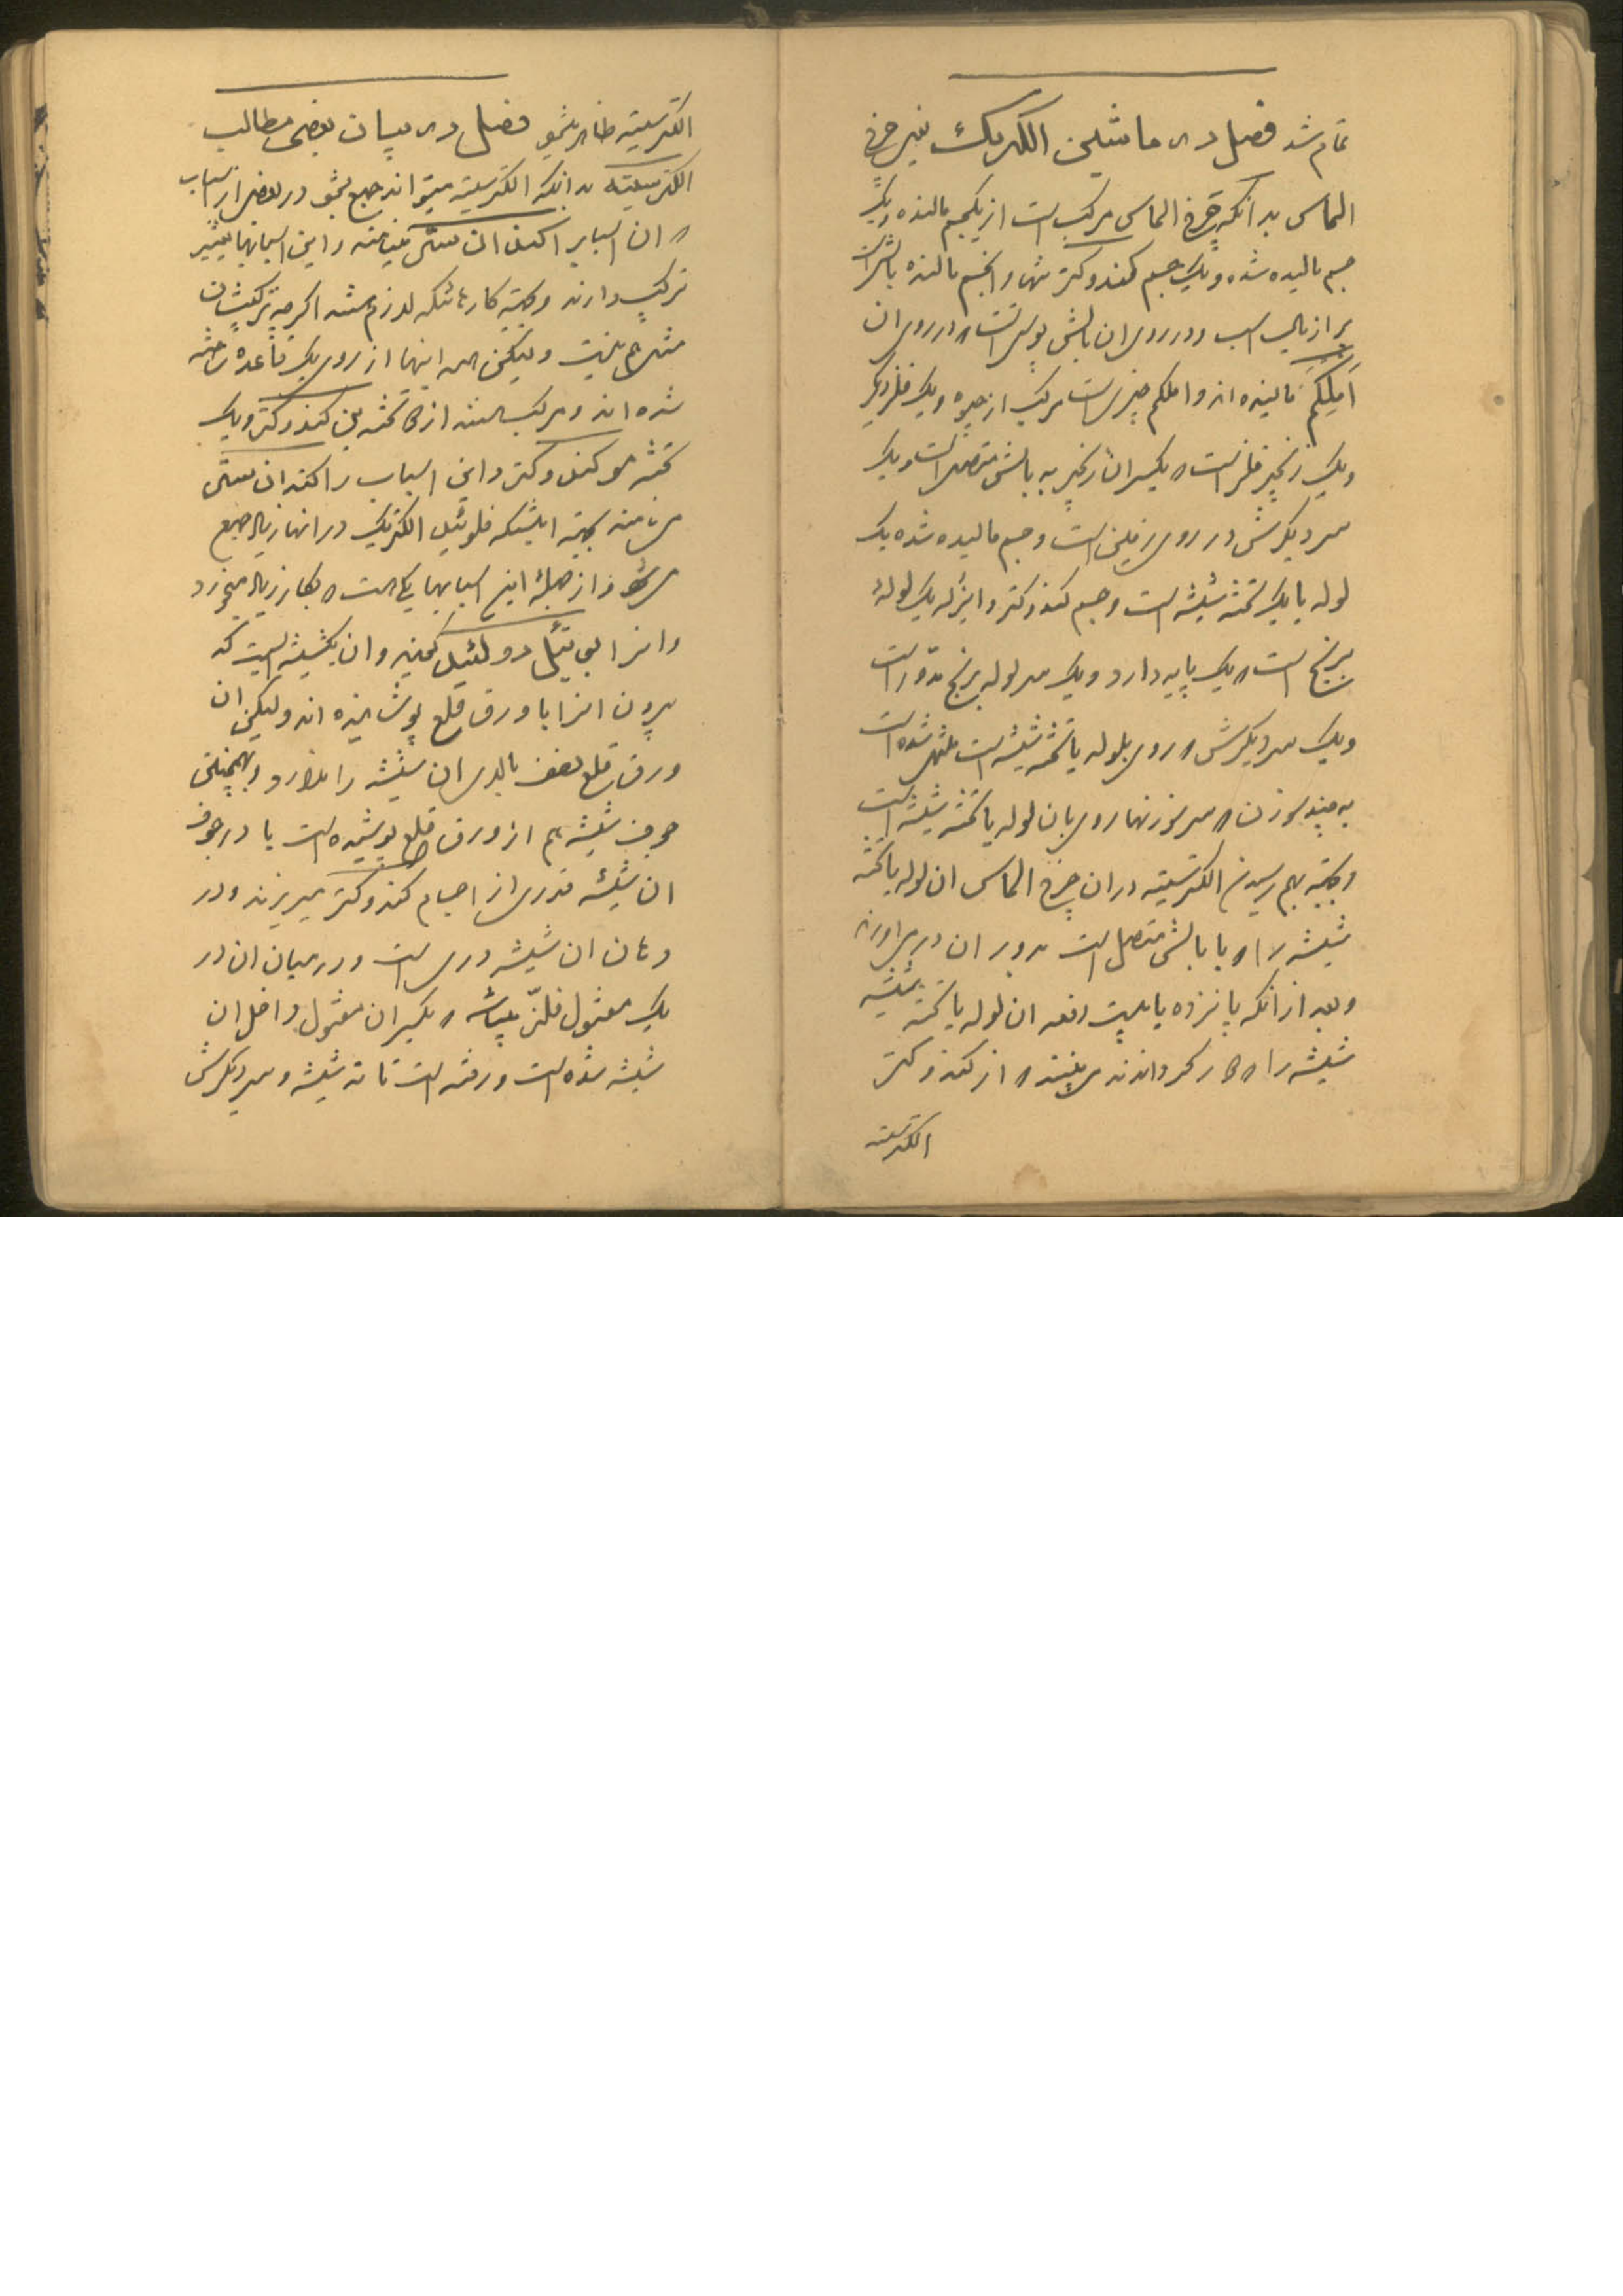 تمام شد فصل در ماشین الکتریک یعنی چرخ
الماس بدانکه چرخ الماس مرکب است از یکجسم مالنده و یک
جسم مالیده شده و یک جسم کندوکتر تنها و انجسم مالنده بالشی است
پر از یال اسب و در روی ان بالش پوستی است که در روی ان
املکم مالیده اند و املکم چیزی است مرکب از جیوه و یک فلز دیگر
و یک زنجیر فلز است که یکسر ان زنجیر به بالش متصل است و یک
سر دیگرش در روی زمین است و جسم مالیده شده یک
لوله یا یک تخته شیشه است و جسم کندوکتر و ایزله یک لوله
برنج است که یک پایه دارد و یک سر لوله برنج مدور است
و یک سر دیگرش که روی بلوله یا تخته شیشه است منتهی شده است
به چند سوزن که سر سوزنها روی بان لوله یا تخته شیشه است
و بجهته بهم رسیدن الکتریسیته در ان چرخ الماس ان لوله یا تخته
شیشه را که با بالش متصل است بدور ان در می اورند
و بعد از انکه پانزده یا بیست دفعه ان لوله یا تخته شیشه
شیشه را که کار گرداندند می بینند که از کندوکتر
الکتریسیته
الکتریسیته ظاهر میشود فصل در بیان بعضی مطالب
الکتریسیته بدانکه الکتریسیته میتواند جمع بشود در بعضی از اسباب
که ان اسباب را کندانستی مینامند و این اسبابها تغییر
ترکیب دارند و بجهته کارهائیکه لازم هستند اگرچه ترکیبشان
مثل هم نیست ولیکن همه اینها از روی یک قاعده ساخته
شده اند و مرکب هستند از دو تخته یعنی کندوکتر و یک
تخته مو کندوکتر و این اسباب را کندانستی
می نامند بجهته اینکه فلوئید الکتریک در انها زیاد جمع
می شود و از جمله این اسبابها یکی هست که بکار زیاد میخورد
وانرا بوتیل دو لئید گویند و ان یکشیشه ایست که
بیرون انرا با ورق قلع پوشانیده اند ولیکن ان
ورق قلع نصف بالای ان شیشه را ندارد و همچنین
جوف شیشه هم از ورق قلع پوشیده است یا در جوف
ان شیشه قدری از اجسام کندوکتر میریزند و در
دهان ان شیشه دری است و در میان ان در
یک مفتول فلز میباشد که یکسر ان مفتول داخل ان
شیشه شده است و رفته است تا ته شیشه و سر دیگرش